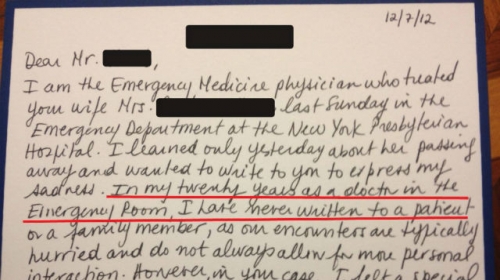 12/7/12
Dear Mr.          ,
I am the Emergency Medicine physician who treated
your wife Mrs.          last Sunday in the
Emergency Department at the New York Presbyterian
Hospital. I learned only yesterday about her passing
away and wanted to write to you to express my
sadness. In my twenty years as a doctor in the
Emergency Room, I have never written to a patient
or a family member, as our encounters are typically
hurried and do not always allow for more personal
interaction. However, in your case, I felt a special